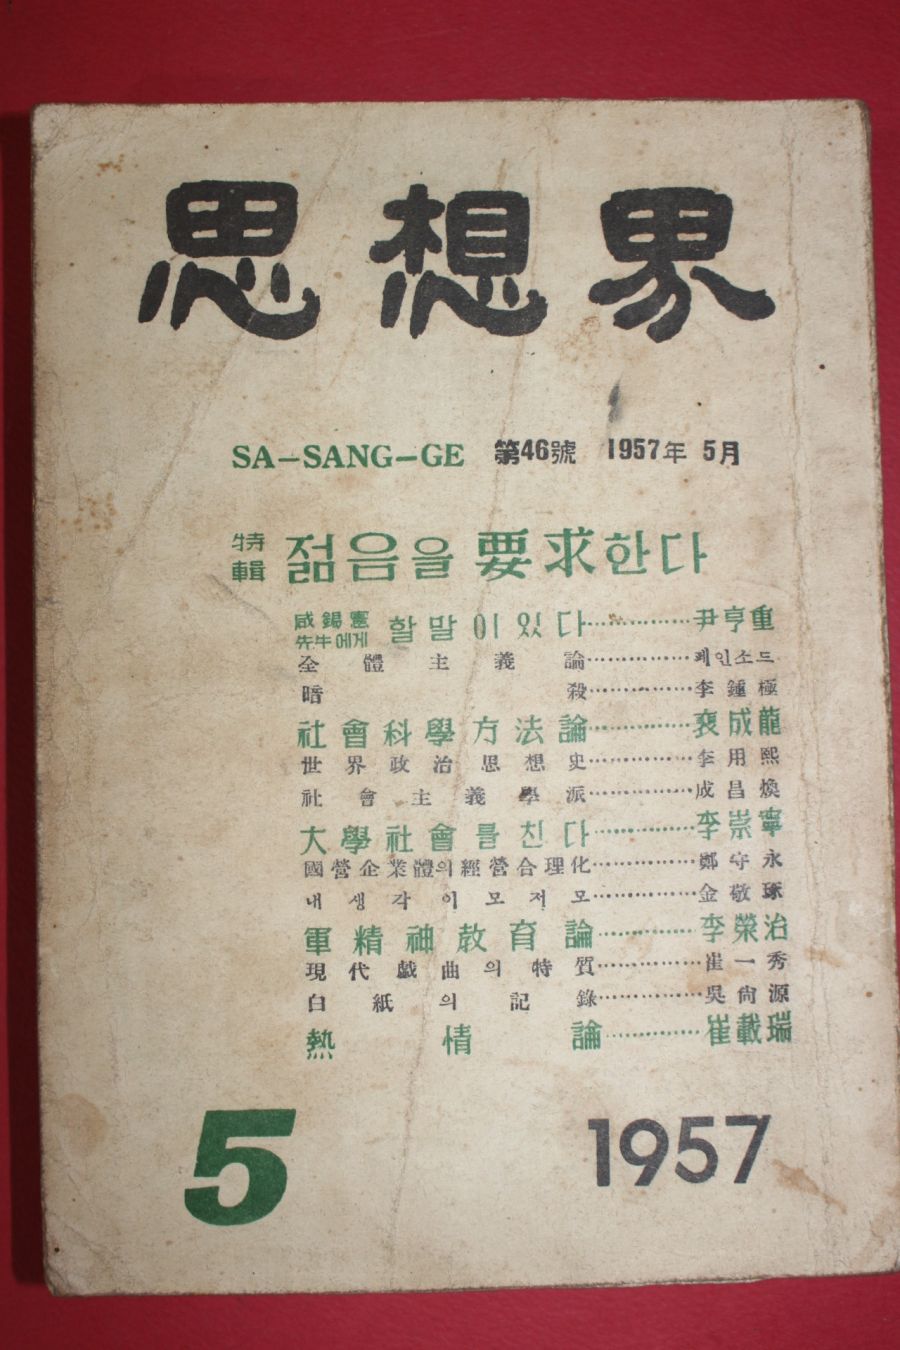 思想界
SA-SANG-GE 第46號 1957年 5月
特輯 젊음을 要求한다
咸錫憲先生에게 할 말이 있다……………尹亨重
全體主義論……………페인소드
暗殺……………李鍾極
社會科學方法論……………裵成龍
世界政治思想史……………李用熙
社會主義學派……………成昌煥
大學社會를 친다……………李崇寧
國營企業體의 經營合理化……………鄭守永
내 생각 이모저모……………金敬琢
軍精神教育論……………李榮治
現代戱曲의 特質……………崔一秀
白紙의 記錄……………吳尙源
熱情論……………崔載瑞
5 1957